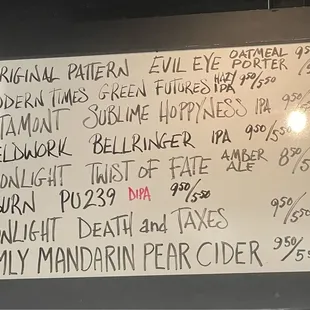 RIGINAL PATTERN EVIL EYE OATMEAL PORTER 9
ODERN TIMES GREEN FUTURES HAZY IPA 9⁵⁰/5⁵⁰
TAMONT SUBLIME HOPPYNESS IPA 9⁵⁰/5
ELDWORK BELLRINGER IPA 9⁵⁰/5⁵⁰
OONLIGHT TWIST OF FATE AMBER ALE 8⁵⁰/5
BURN PU239 DIPA 9⁵⁰/5⁵⁰
ONLIGHT DEATH and TAXES 9⁵⁰/5⁵⁰
MLY MANDARIN PEAR CIDER 9⁵⁰/5⁵